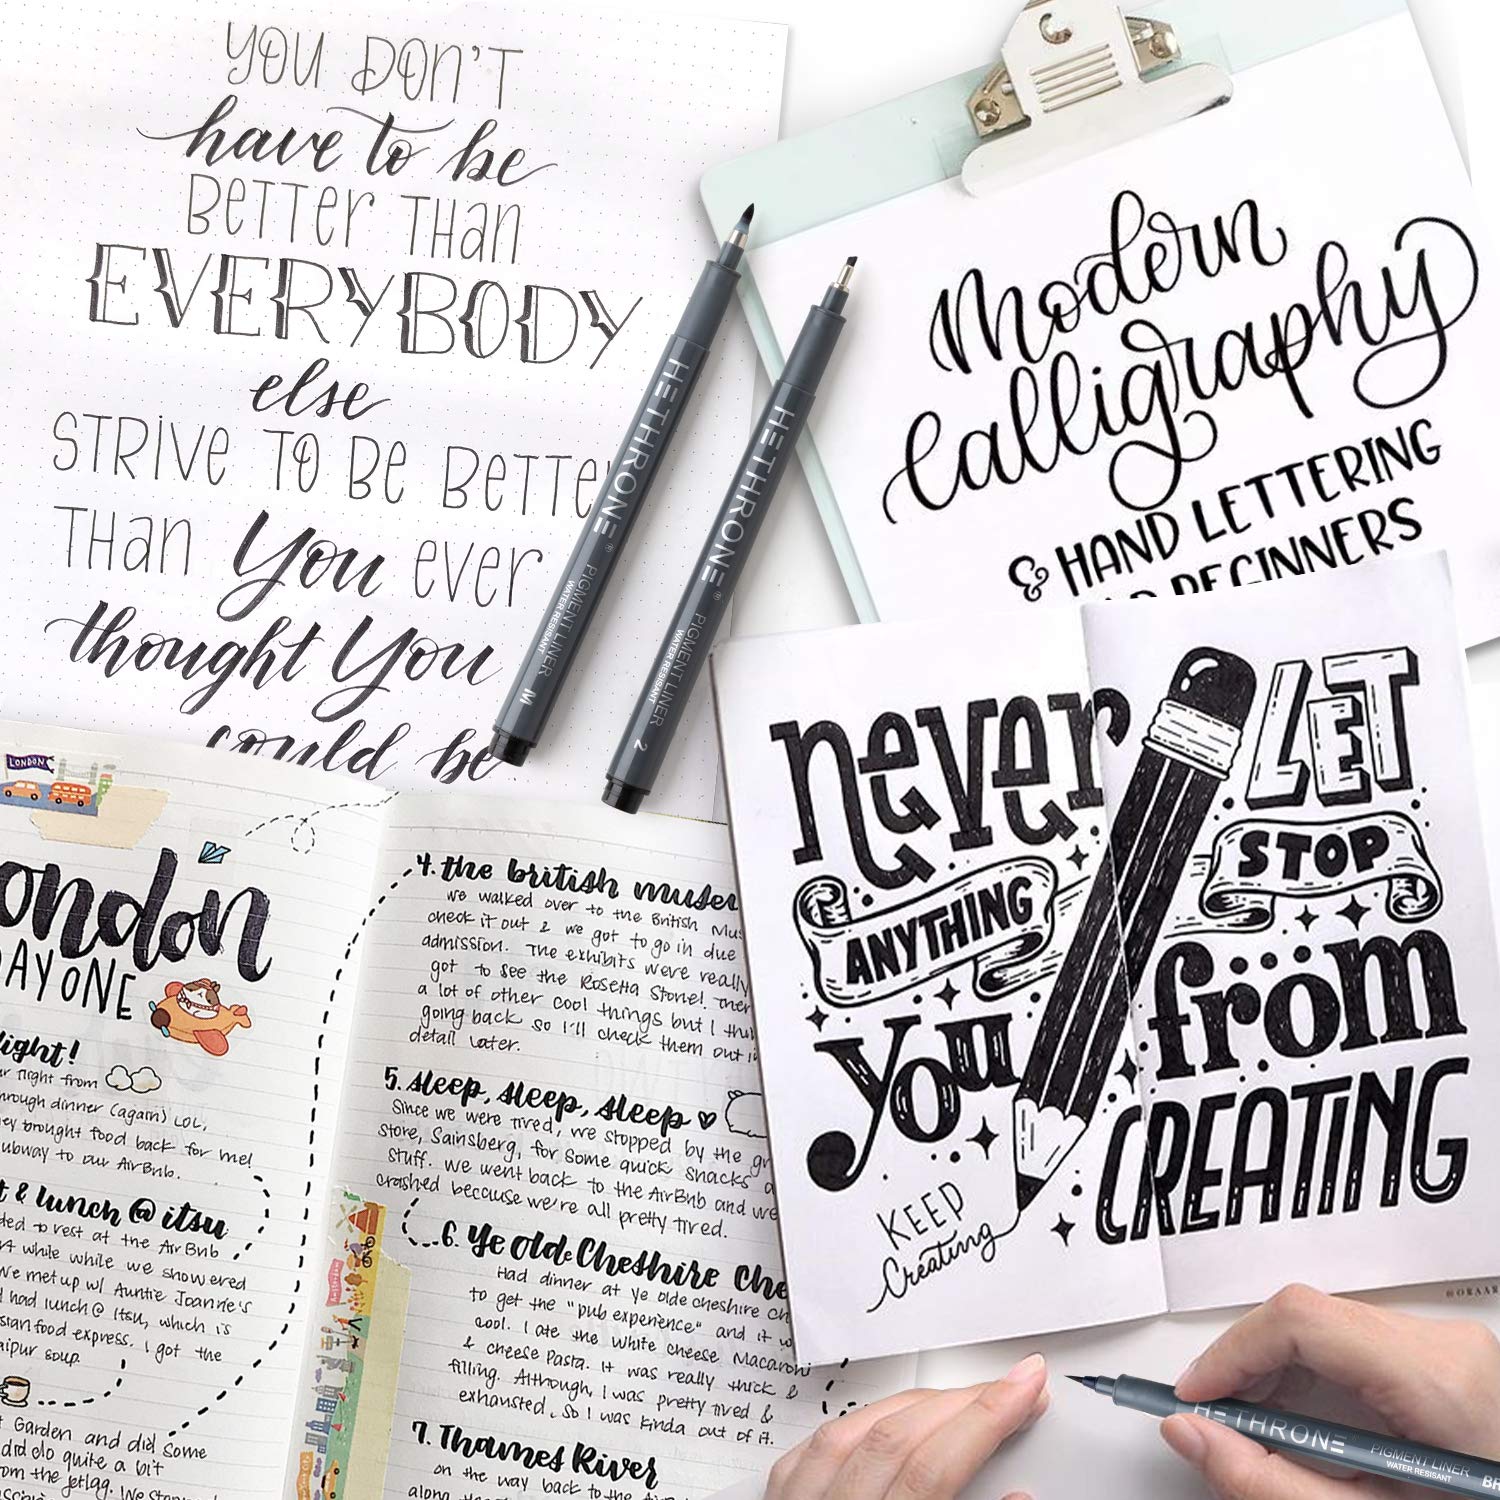 YOU DON'T
have to be
BETTER THAN
EVERYBODY
else
STRIVE TO BE BETTE
THAN You ever
thought You
could be
HETHRONE® PIGMENT LINER M
WATER RESISANT
HETHRONE® PIGMENT LINER 2
WATER RESISANT
Modern
Calligraphy
& HAND LETTERING
BEGINNERS
never
ANYTHING
you
KEEP
Creating
LET
STOP
from
CREATING
LONDON
ondon
DAY ONE
light!
ur flight from
hrough dinner (again) LOL,
ey brought food back for me!
ubway to our AirBnb.
t & lunch @ itsu
ded to rest at the AirBnb
rt while while we showered
We met up w/ Auntie Joanne's
d had lunch @ Itsu, which is
sian food express. I got the
aipur soup.
t Garden and did some
did do quite a bit
rom the jetlag. We stopp
4. the british museu
We walked over to the British Mus
check it out & we got to go in due
admission. The exhibits were really
got to see the Rosetta Stone! Ther
a lot of other cool things but I thi
going back so I'll check them out i
detail later.
5. sleep, sleep, sleep ♡
Since we were tired, we stopped by the gr
store, Sainsberg, for some quick snacks a
stuff. We went back to the AirBnb and we
crashed because we're all pretty tired.
6. Ye Olde Cheshire Che
Had dinner at Ye Olde Cheshire Ch
to get the "pub experience" and it w
cool. I ate the White Cheese Macaroni
& Cheese Pasta. It was really thick &
filling. Although, I was pretty tired &
exhausted, so I was kinda out of it.
7. Thames River
on the way back to the
along the
Amsterdam
HETHRONE PIGMENT LINER BR
WATER RESISANT